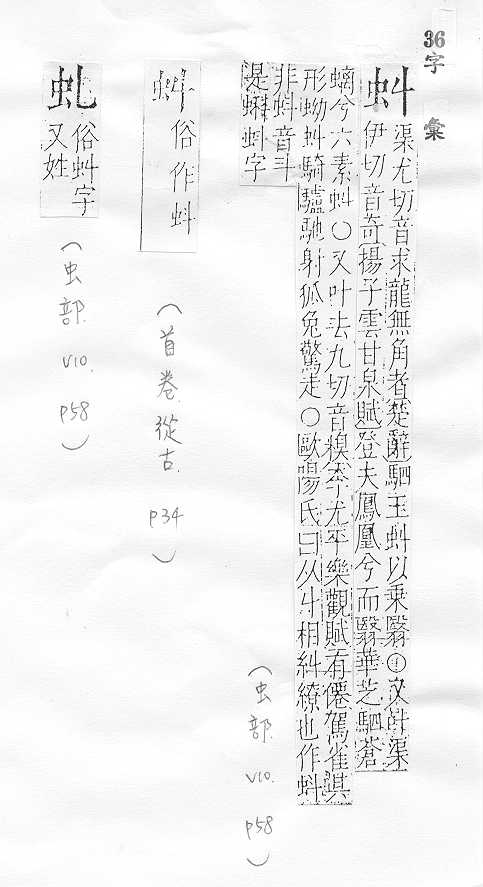 36字彙
虯 渠尤切音求龍無角者楚辭駟玉虯以乘鷖○又叶渠
伊切音奇揚子雲甘泉賦登夫鳳凰兮而翳華芝駟蒼
螭兮六素虯○又叶去九切音糗李尤平樂觀賦有僊駕雀其
形蚴虯騎驢馳射狐兔驚走○歐陽氏曰从丩相糾繚也作蚪
非蚪音斗
是蝌蚪字
(虫部 V10. P58)
俗作蚪
(首卷從古. P34)
虬 俗虯字
又姓
(虫部 V10. P58)